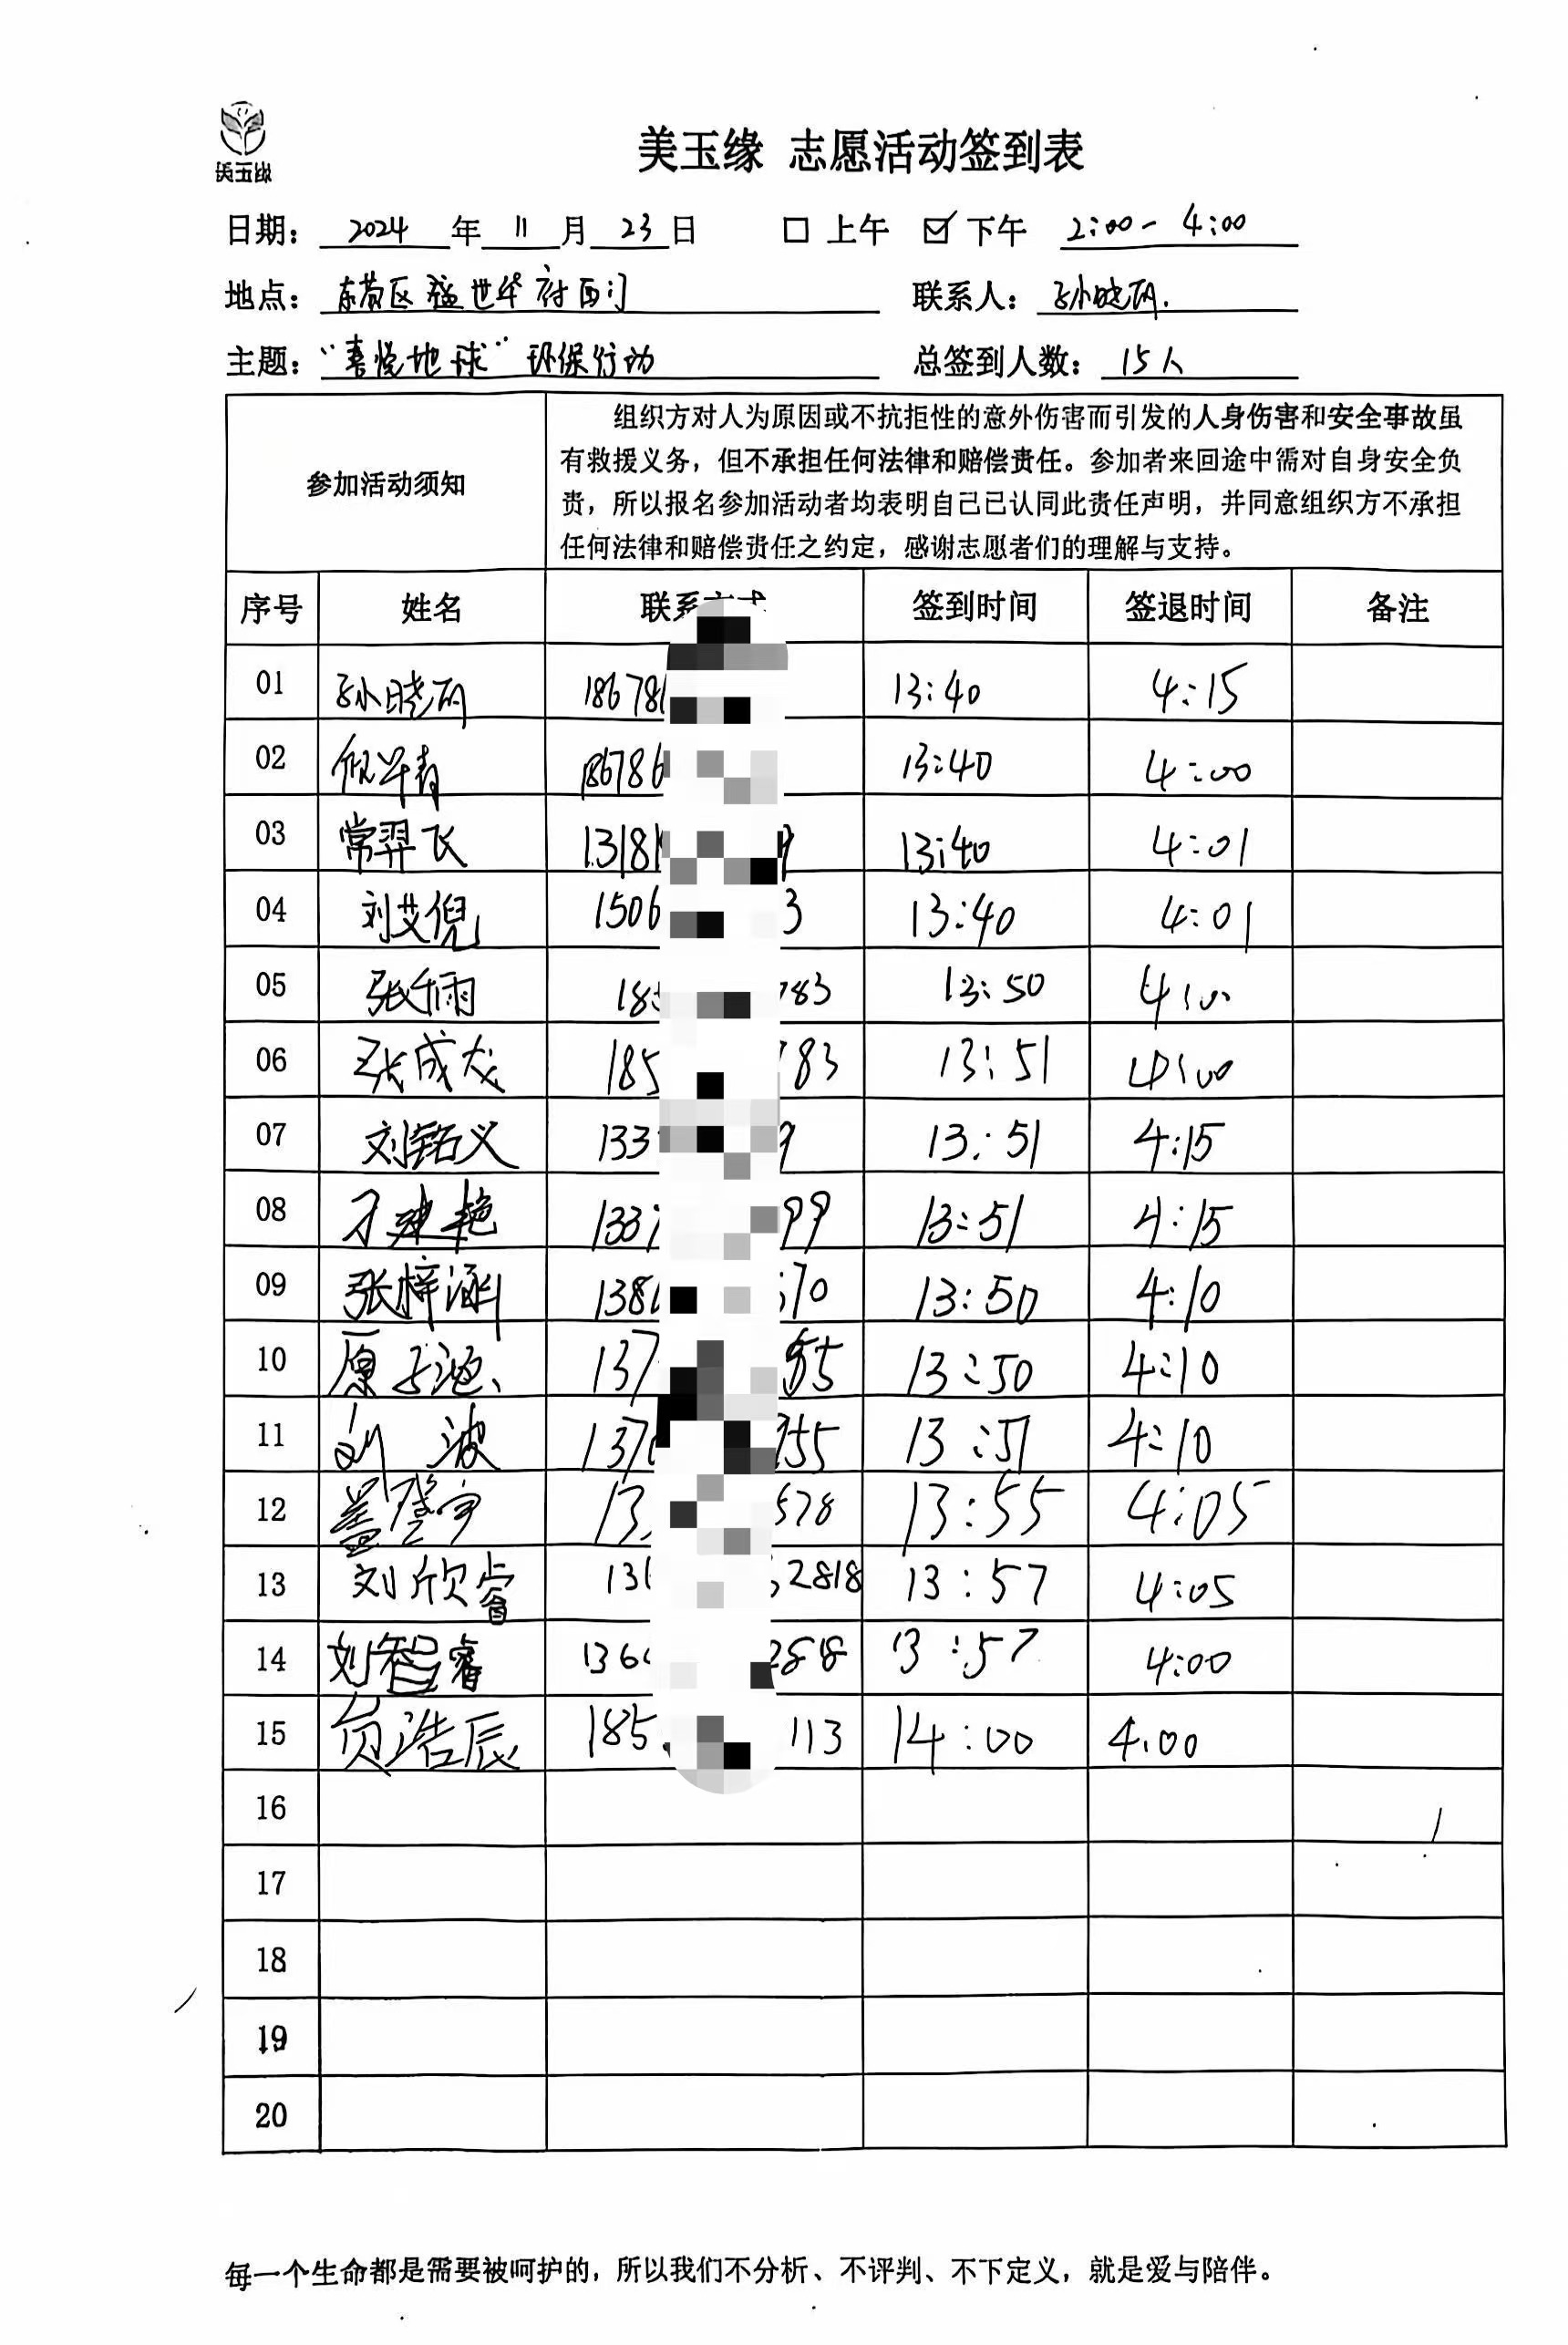 美玉缘
美玉缘 志愿活动签到表
日期： 2024 年 11 月 23 日 上午 下午 2:00 - 4:00
地点： 东营区盛世华府西门 联系人： 孙晓
主题： “喜悦地球”环保行动 总签到人数： 15人
参加活动须知
组织方对人为原因或不抗拒性的意外伤害而引发的人身伤害和安全事故虽
有救援义务，但不承担任何法律和赔偿责任。参加者来回途中需对自身安全负
责，所以报名参加活动者均表明自己已认同此责任声明，并同意组织方不承担
任何法律和赔偿责任之约定，感谢志愿者们的理解与支持。
序号 姓名 联系方式 签到时间 签退时间 备注
01 孙晓 18678 13:40 4:15
02 18678 13:40 4:00
03 常羿飞 1318 13:40 4:01
04 刘艾倪 1506 3 13:40 4:01
05 张千雨 18 783 13:50 4:00
06 张成龙 185 783 13:51 4:00
07 刘铭义 133 9 13:51 4:15
08 建艳 133 99 13:51 4:15
09 张梓涵 138 70 13:50 4:10
10 原子涵 137 55 13:50 4:10
11 刘波 137 55 13:51 4:10
12 盖登宇 13 578 13:55 4:05
13 刘欣睿 13 2818 13:57 4:05
14 刘智睿 136 13:57 4:00
15 贠浩辰 185 113 14:00 4:00
16
17
18
19
20
每一个生命都是需要被呵护的，所以我们不分析、不评判、不下定义，就是爱与陪伴。